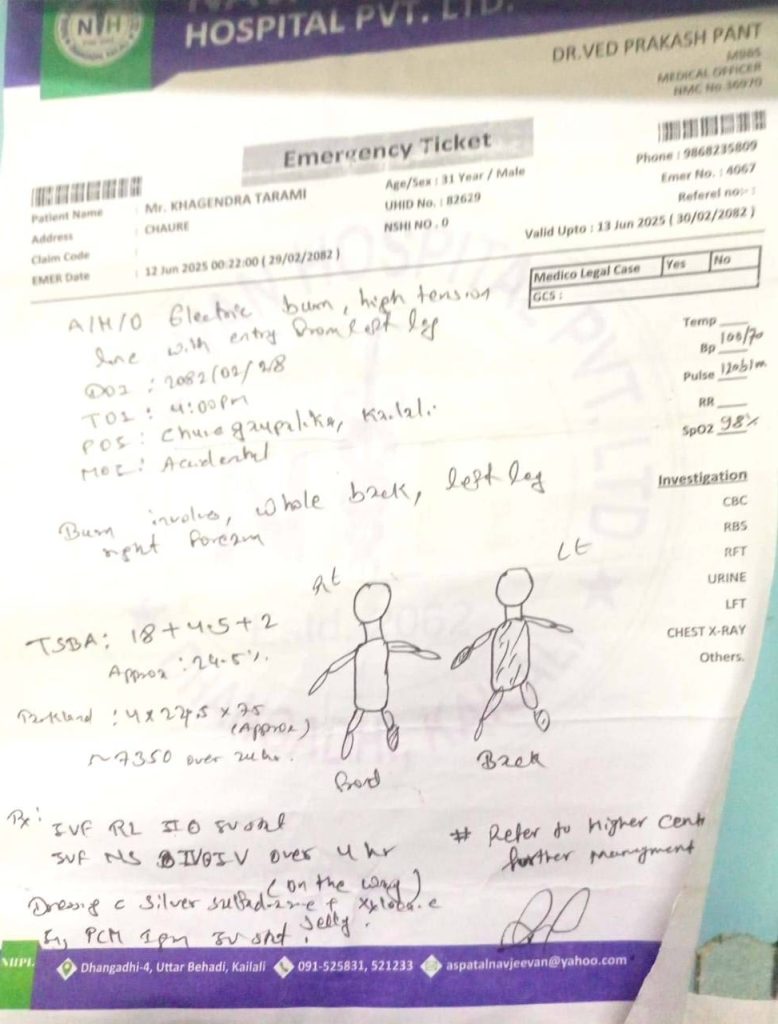 HOSPITAL PVT. LTD.
NH
DR.VED PRAKASH PANT
MBBS
MEDICAL OFFICER
NMC No.36970
Emergency Ticket
Patient Name : Mr. KHAGENDRA TARAMI
Address : CHAURE
Claim Code
EMER Date : 12 Jun 2025 00:22:00 ( 29/02/2082 )
Age/Sex : 31 Year / Male
UHID No. : 82629
NSHI NO . 0
Phone : 9868235809
Emer No. : 4067
Referel no:- :
Valid Upto : 13 Jun 2025 ( 30/02/2082 )
Medico Legal Case Yes No
GCS :
A/H/O Electric burn, high tension
line with entry from left leg
DOI : 2082/02/28
TOI : 4:00pm
POI : Chure gaupalika, Kailali.
MOI : Accidental
Temp
Bp 100/70
Pulse 120b/m
RR
SpO2 98%
Burn involves, whole back, left leg
right forearm
Investigation
CBC
RBS
RFT
URINE
LFT
CHEST X-RAY
Others.
Rt
Lt
TSBA: 18+4.5+2
Approx : 24.5%.
Parkland : 4 x 24.5 x 75
(Approx)
~7350 over 24hr.
Back
Rx:
IVF RL II O IV stat
IVF NS over 4 hr
(on the way)
Dressing c silver
Jelly.
Inj PCM 1gm IV stat.
# Refer to higher
further
NHPL
Dhangadhi-4, Uttar Behadi, Kailali 091-525831, 521233 aspatalnavjeevan@yahoo.com